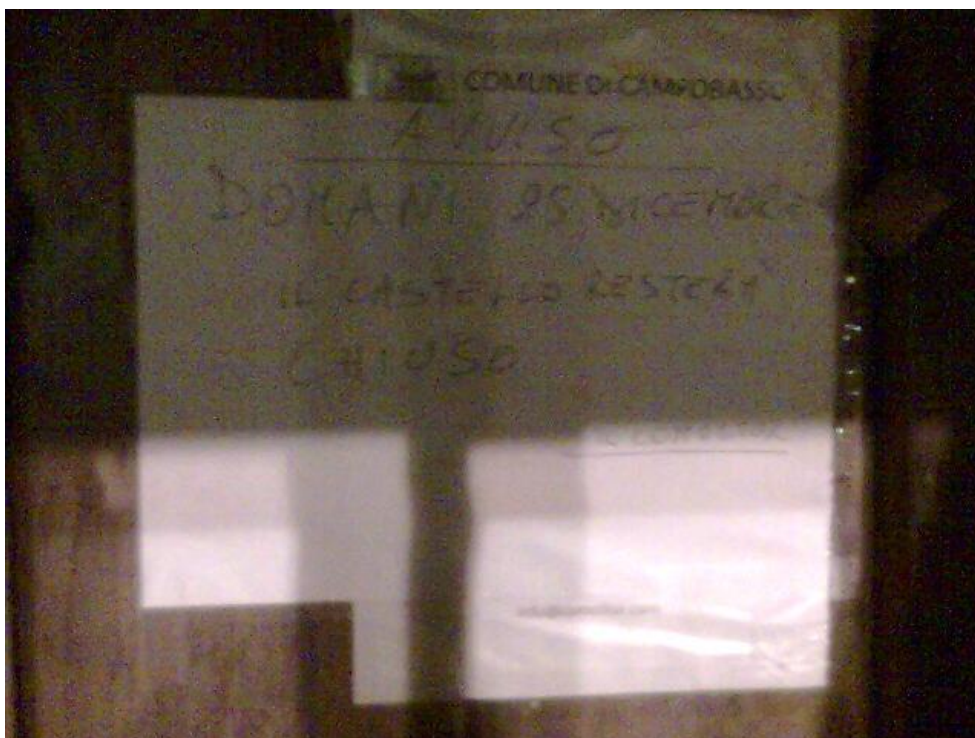 COMUNE DI CAMPOBASSO
AVVISO
DOMANI 25 DICEMBRE
IL CASTELLO RESTERÀ
CHIUSO